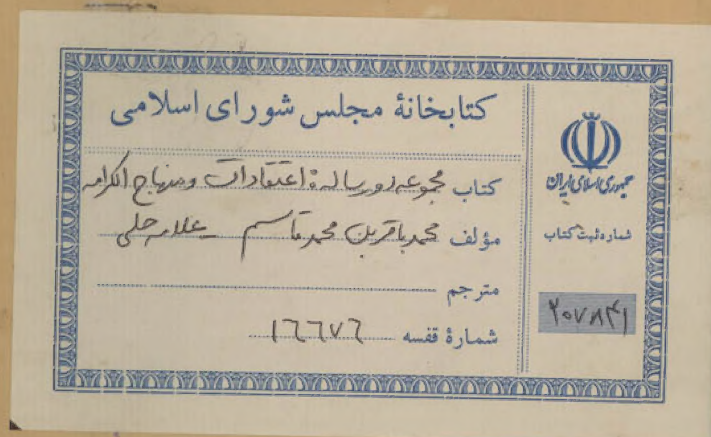 کتابخانهٔ مجلس شورای اسلامی
کتاب مجموعه دو رساله: اعتقادات و منهاج الکرامه
مؤلف محمد باقر بن محمد قاسم ــ علامه حلی
مترجم
شمارهٔ قفسه ۱۶۶۷۶
جمهوری اسلامی ایران
شماره ثبت کتاب
۲۰۷۸۴۱